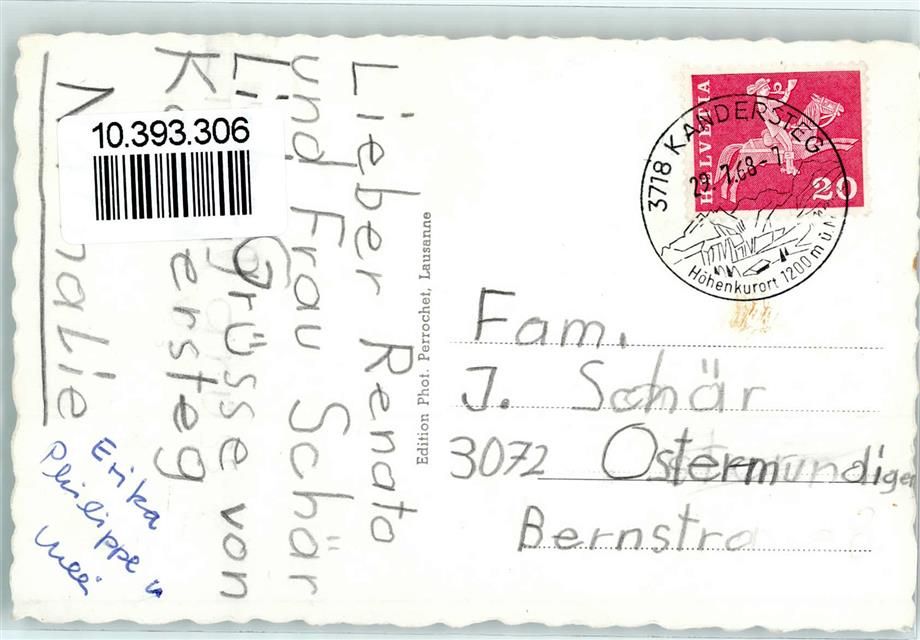 Lieber Renato
und Frau Schär
Grüsse von
ersteg
Nathalie
Erika
Philippe u
10.393.306
Edition Phot. Perrochet, Lausanne
HELVETIA
20
3718 KANDERSTEG
29.7.68-7
Höhenkurort 1200 m ü.M
Fam.
J. Schär
3072 Ostermundigen
Bernstra